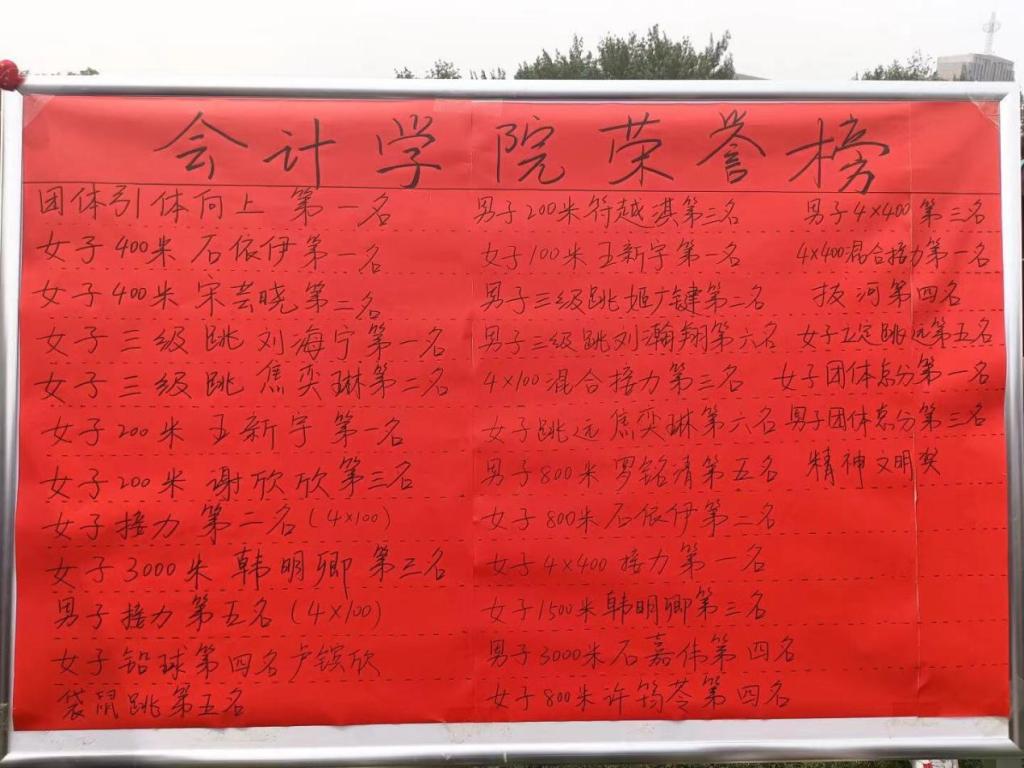 会计学院荣誉榜
团体引体向上 第一名
女子400米 石依伊第一名
女子400米 宋芸晓第二名
女子三级跳刘海宁第一名
女子三级跳焦奕琳第二名
女子200米 王新宇第一名
女子200米 谢欣欣第三名
女子接力 第二名(4×100)
女子3000米 韩明卿 第三名
男子接力 第五名(4×100)
女子铅球第四名卢 欣
袋鼠跳第五名
男子200米符越淇第三名
女子100米王新宇第一名
男子三级跳姬广键第二名
男子三级跳刘瀚翔第六名
4×100混合接力第三名
女子跳远焦奕琳第六名
男子800米罗铭清第五名
女子800米石依伊第二名
女子4×400接力第一名
女子1500米韩明卿第三名
男子3000米石嘉伟第四名
女子800米许筠苓第四名
男子4×400第三名
4×400混合接力第一名
拔河第四名
女子立定跳远第五名
女子团体总分第一名
男子团体总分第三名
精神文明奖